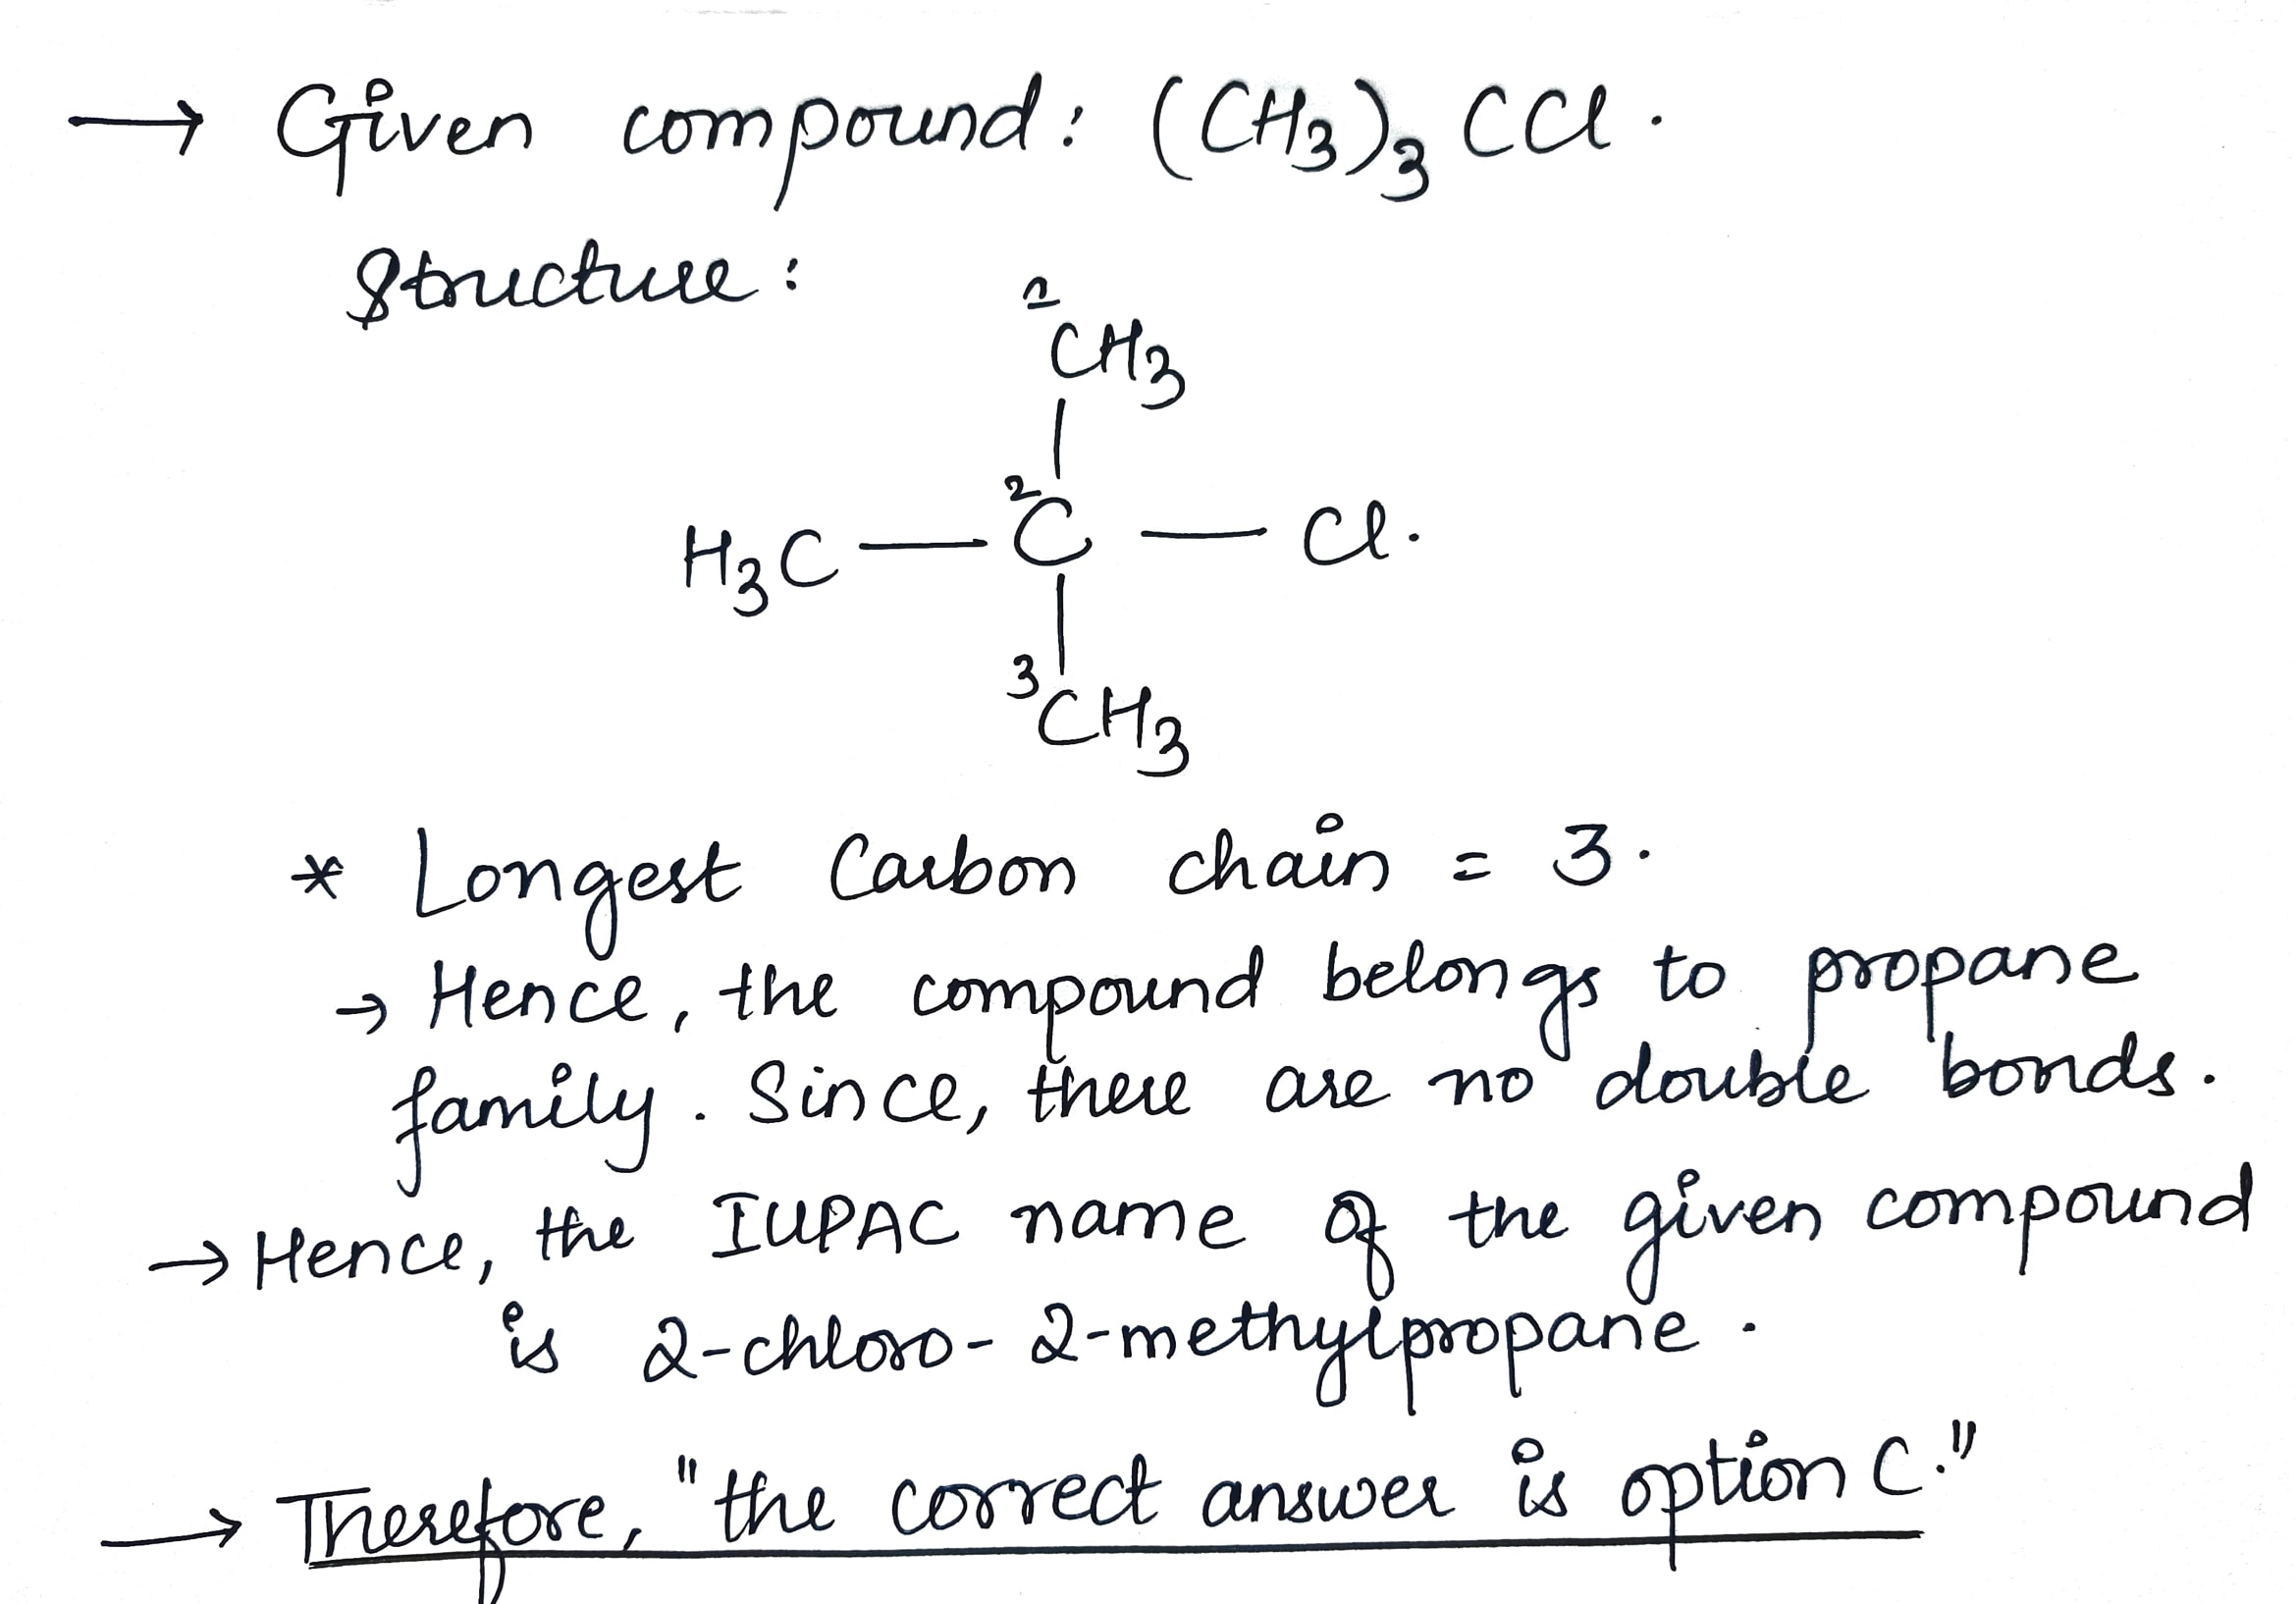 → Given compound: (CH3)3 CCl.
Structure:
1
CH3
|
2
H3C — C — Cl.
|
3
CH3
* Longest Carbon chain = 3.
→ Hence, the compound belongs to propane
family. Since, there are no double bonds.
→ Hence, the IUPAC name of the given compound
is 2-chloro-2-methylpropane.
→ Therefore, "the correct answer is option C."